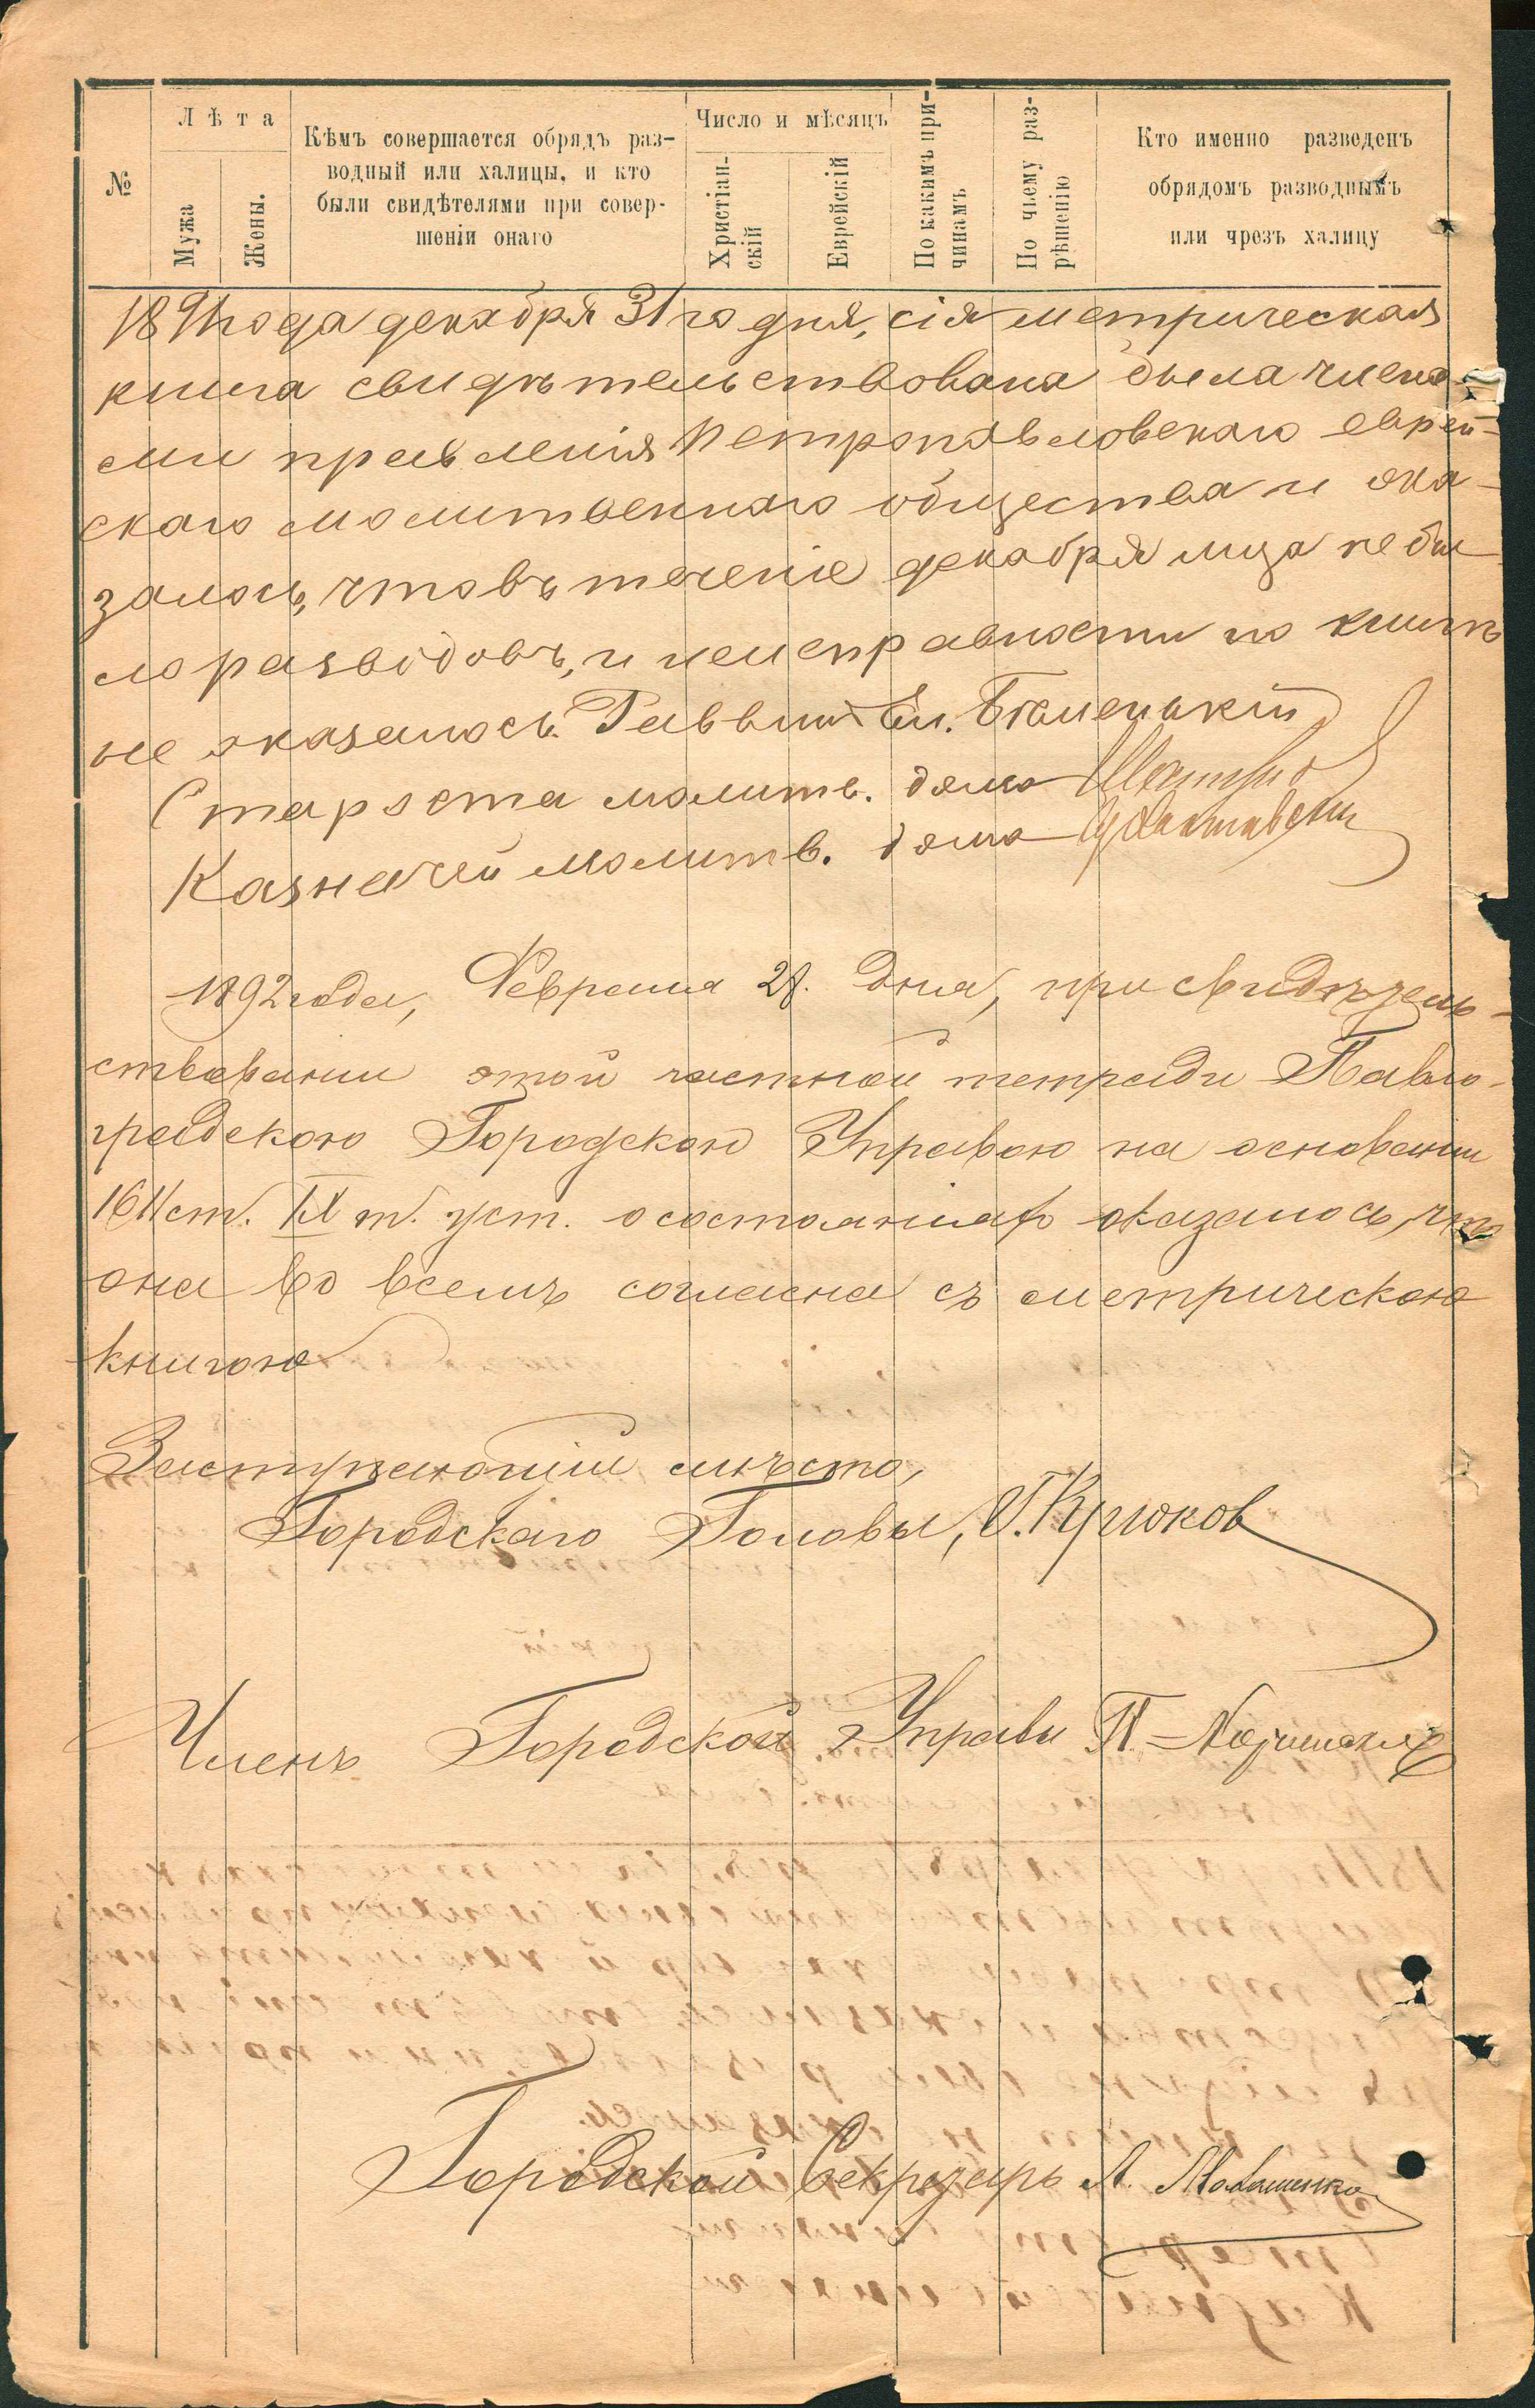 №
Лѣта
Мужа
Жены.
Кѣмъ совершается обрядъ раз-
водный или халицы, и кто
были свидѣтелями при совер-
шеніи онаго
Число и мѣсяцъ
Христіан-
скій
Еврейскій
По какимъ при-
чинамъ
По чьему раз-
рѣшенію
Кто именно разведенъ
обрядомъ разводнымъ
или чрезъ халицу
1891 года декабря 31 го дня, сія метрическая
книга свидѣтельствована была члена-
ми правленія Петропавловскаго еврей-
скаго молитвеннаго общества и ока-
залось, что въ теченіе декабря мца не бы
ло разводовъ, и неисправности по книгѣ
не оказалось. Раввинъ
Староста молитв. дома
Казначей молитв. дома
1892 года, Февраля 28. Дня, при свидѣтель-
ствовании этой частной тетради Павло-
градскою Городскою Управою на основании
1611 ст. IX т. уст. о состоянияхъ оказалось, что
она во всемъ согласна съ метрическою
книгою
Заступающий мѣсто,
Городскаго Головы, Г. Крюков
Членъ Городской Управы П.
Городской Секретарь А.